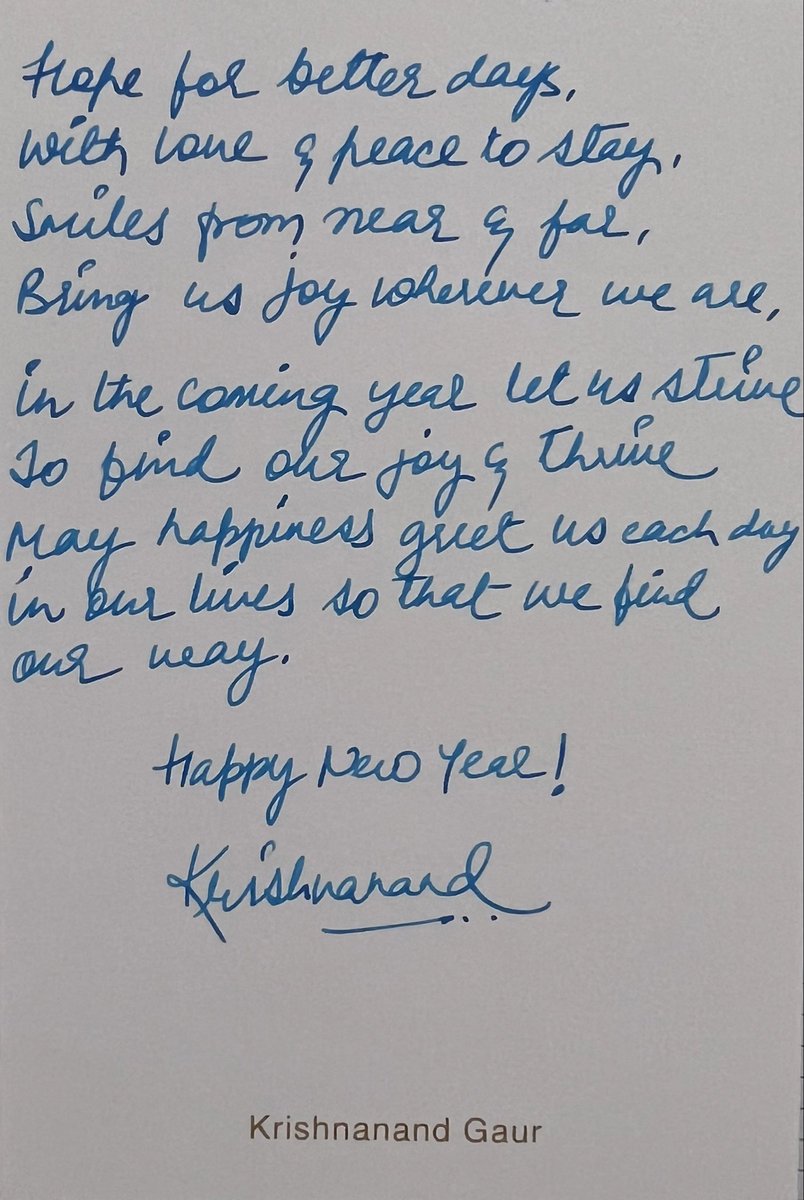 Hope for better days,
with love & peace to stay,
Smiles from near & far,
Bring us joy wherever we are,
in the coming year let us strive
To find our joy & thrive
May happiness greet us each day
in our lives so that we find
our way.
Happy New Year!
Krishnanand
Krishnanand Gaur